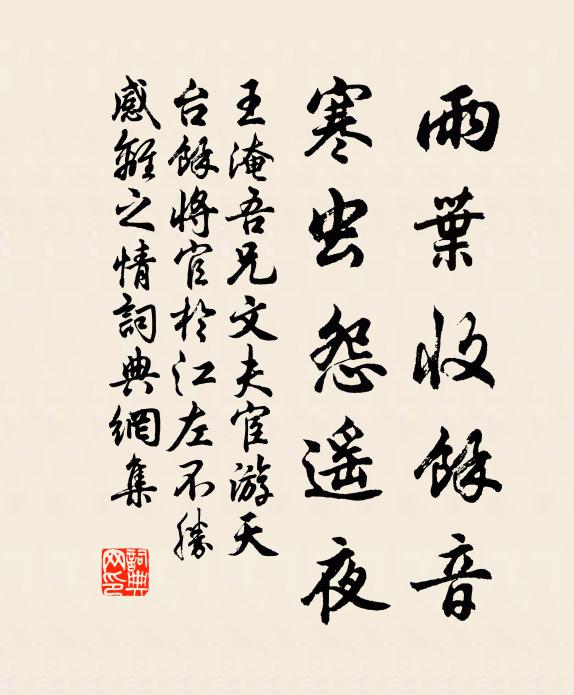 雨葉收餘音
寒虫怨遥夜
王淹吾兄文夫宦游天
台餘將官於江左不勝
感離之情詞典網集
詞典网印